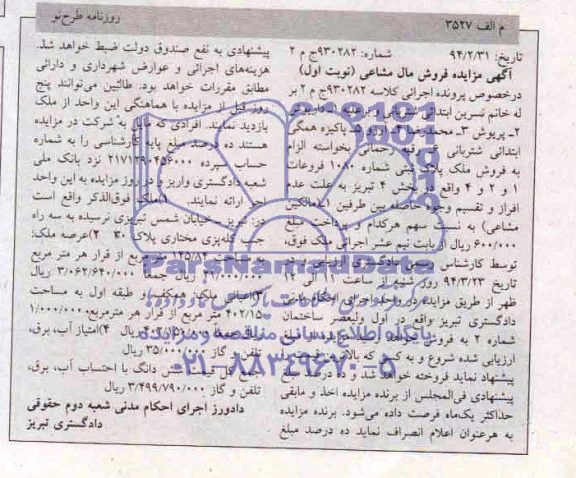 م الف ۳۵۲۷
روزنامه طرح‌نو
تاریخ: ۹۴/۲/۳۱ شماره: ۹۳۰۲۸۲ج م ۲
آگهی مزایده فروش مال مشاعی (نوبت اول)
درخصوص پرونده اجرائی کلاسه ۹۳۰۲۸۲ج م ۲ بر
له خانم نسرین ابتدائی شتربانی و برعلیه
۲ـ پریوش ۳ـ محمدرضا پاکیزه همگی
ابتدائی شتربانی ۶ـ رقیه رحمانی بخواسته الزام
به فروش ملک پلاک ثبتی شماره ۱۰۸۰ فروعات
۱ و ۲ و ۴ واقع در بخش ۴ تبریز به علت عدم
افراز و تقسیم وجوه حاصله بین طرفین (مالکین
مشاعی) به نسبت سهم هرکدام و پرداخت مبلغ
۶۰۰/۰۰۰ ریال از بابت نیم عشر اجرائی ملک فوق،
توسط کارشناس رسمی دادگستری ارزیابی و در
تاریخ ۹۴/۳/۲۳ روز شنبه از ساعت ۱۱ الی ۱۲
ظهر از طریق مزایده در واحد اجرای احکام مدنی
دادگستری تبریز واقع در اول ولیعصر ساختمان
شماره ۲ به فروش خواهد رسید مزایده از مبلغ
ارزیابی شده شروع و به کسی که بالاترین قیمت را
پیشنهاد نماید فروخته خواهد شد و ده درصد مبلغ
پیشنهادی فی‌المجلس از برنده مزایده اخذ و مابقی
حداکثر یک‌ماه فرصت داده می‌شود. برنده مزایده
به هرعنوان اعلام انصراف نماید ده درصد مبلغ
پیشنهادی به نفع صندوق دولت ضبط خواهد شد.
هزینه‌های اجرائی و عوارض شهرداری و دارائی
مطابق مقررات خواهد بود. طالبین می‌توانند پنج
روز قبل از مزایده با هماهنگی این واحد از ملک
بازدید نمایند. افرادی که مایل به شرکت در مزایده
هستند ده درصد مبلغ پایه کارشناسی را به شماره
حساب سپرده ۲۱۷۱۲۹۰۴۵۶۰۰۰ نزد بانک ملی
شعبه دادگستری واریز و در روز مزایده به این واحد
اجرا ارائه نمایند. (ملک فوق‌الذکر واقع است
در: تبریز ـ خیابان شمس تبریزی نرسیده به سه راه
جنب کله‌پزی مختاری پلاک ۳۰ ۲) عرصه ملک:
به مساحت ۱۴۵/۸۴ متر مربع از قرار هر متر مربع
۲۱/۰۰۰/۰۰۰ ریال جمعاً ۳/۰۶۲/۶۴۰/۰۰۰ ریال
۳) اعیانی ملک: همکف و طبقه اول به مساحت
۴۰۲/۱۵ متر مربع از قرار هر مترمربع ۱/۰۰۰/۰۰۰
ریال جمعاً ۴۰۲/۱۵۰/۰۰۰ ریال ۴) امتیاز آب، برق،
تلفن و گاز ۳۵/۰۰۰/۰۰۰ ریال
دانگ با احتساب آب، برق،
تلفن و گاز ۳/۴۹۹/۷۹۰/۰۰۰ ریال
دادورز اجرای احکام مدنی شعبه دوم حقوقی
دادگستری تبریز
ParsNamadData
پایگاه اطلاع رسانی مناقصه و مزایده
۰۲۱-۸۸۳۴۹۶۷۰-۵